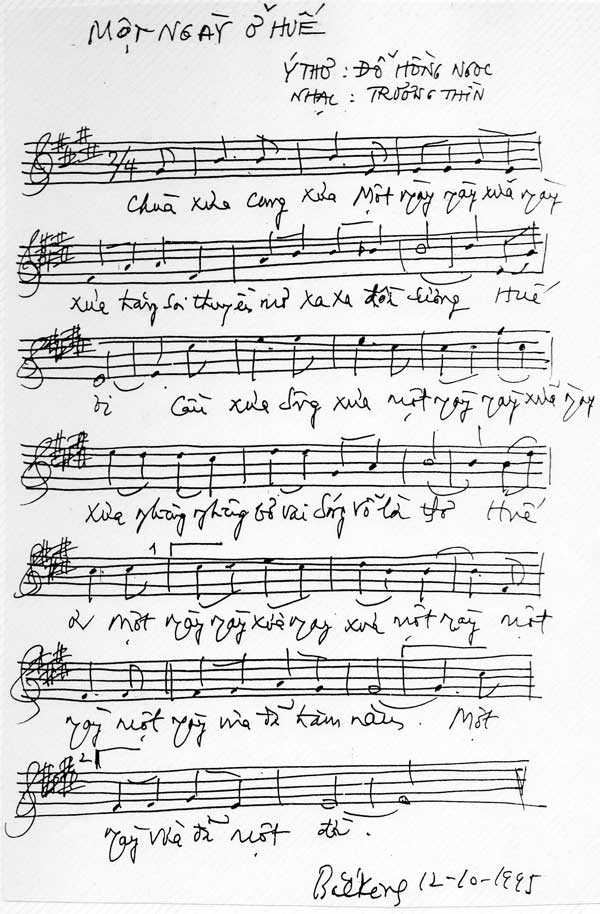 MỘT NGÀY Ở HUẾ
Ý THƠ : ĐỖ HỒNG NGỌC
NHẠC : TRƯƠNG THÌN
2/4
Chùa xưa cung xưa Một ngày ngày xưa ngày
xưa hàng soi thuyền mơ xa xa đồi sương Huế
ơi Cầu xưa sông xưa một ngày ngày xưa ngày
xưa nhẹ bờ vai sóng vỗ là thơ Huế
ơi Một ngày ngày xưa ngày xưa một ngày một
1
ngày một ngày mà đã trăm năm. Một
2
ngày mà đã một đời.
12-10-1995